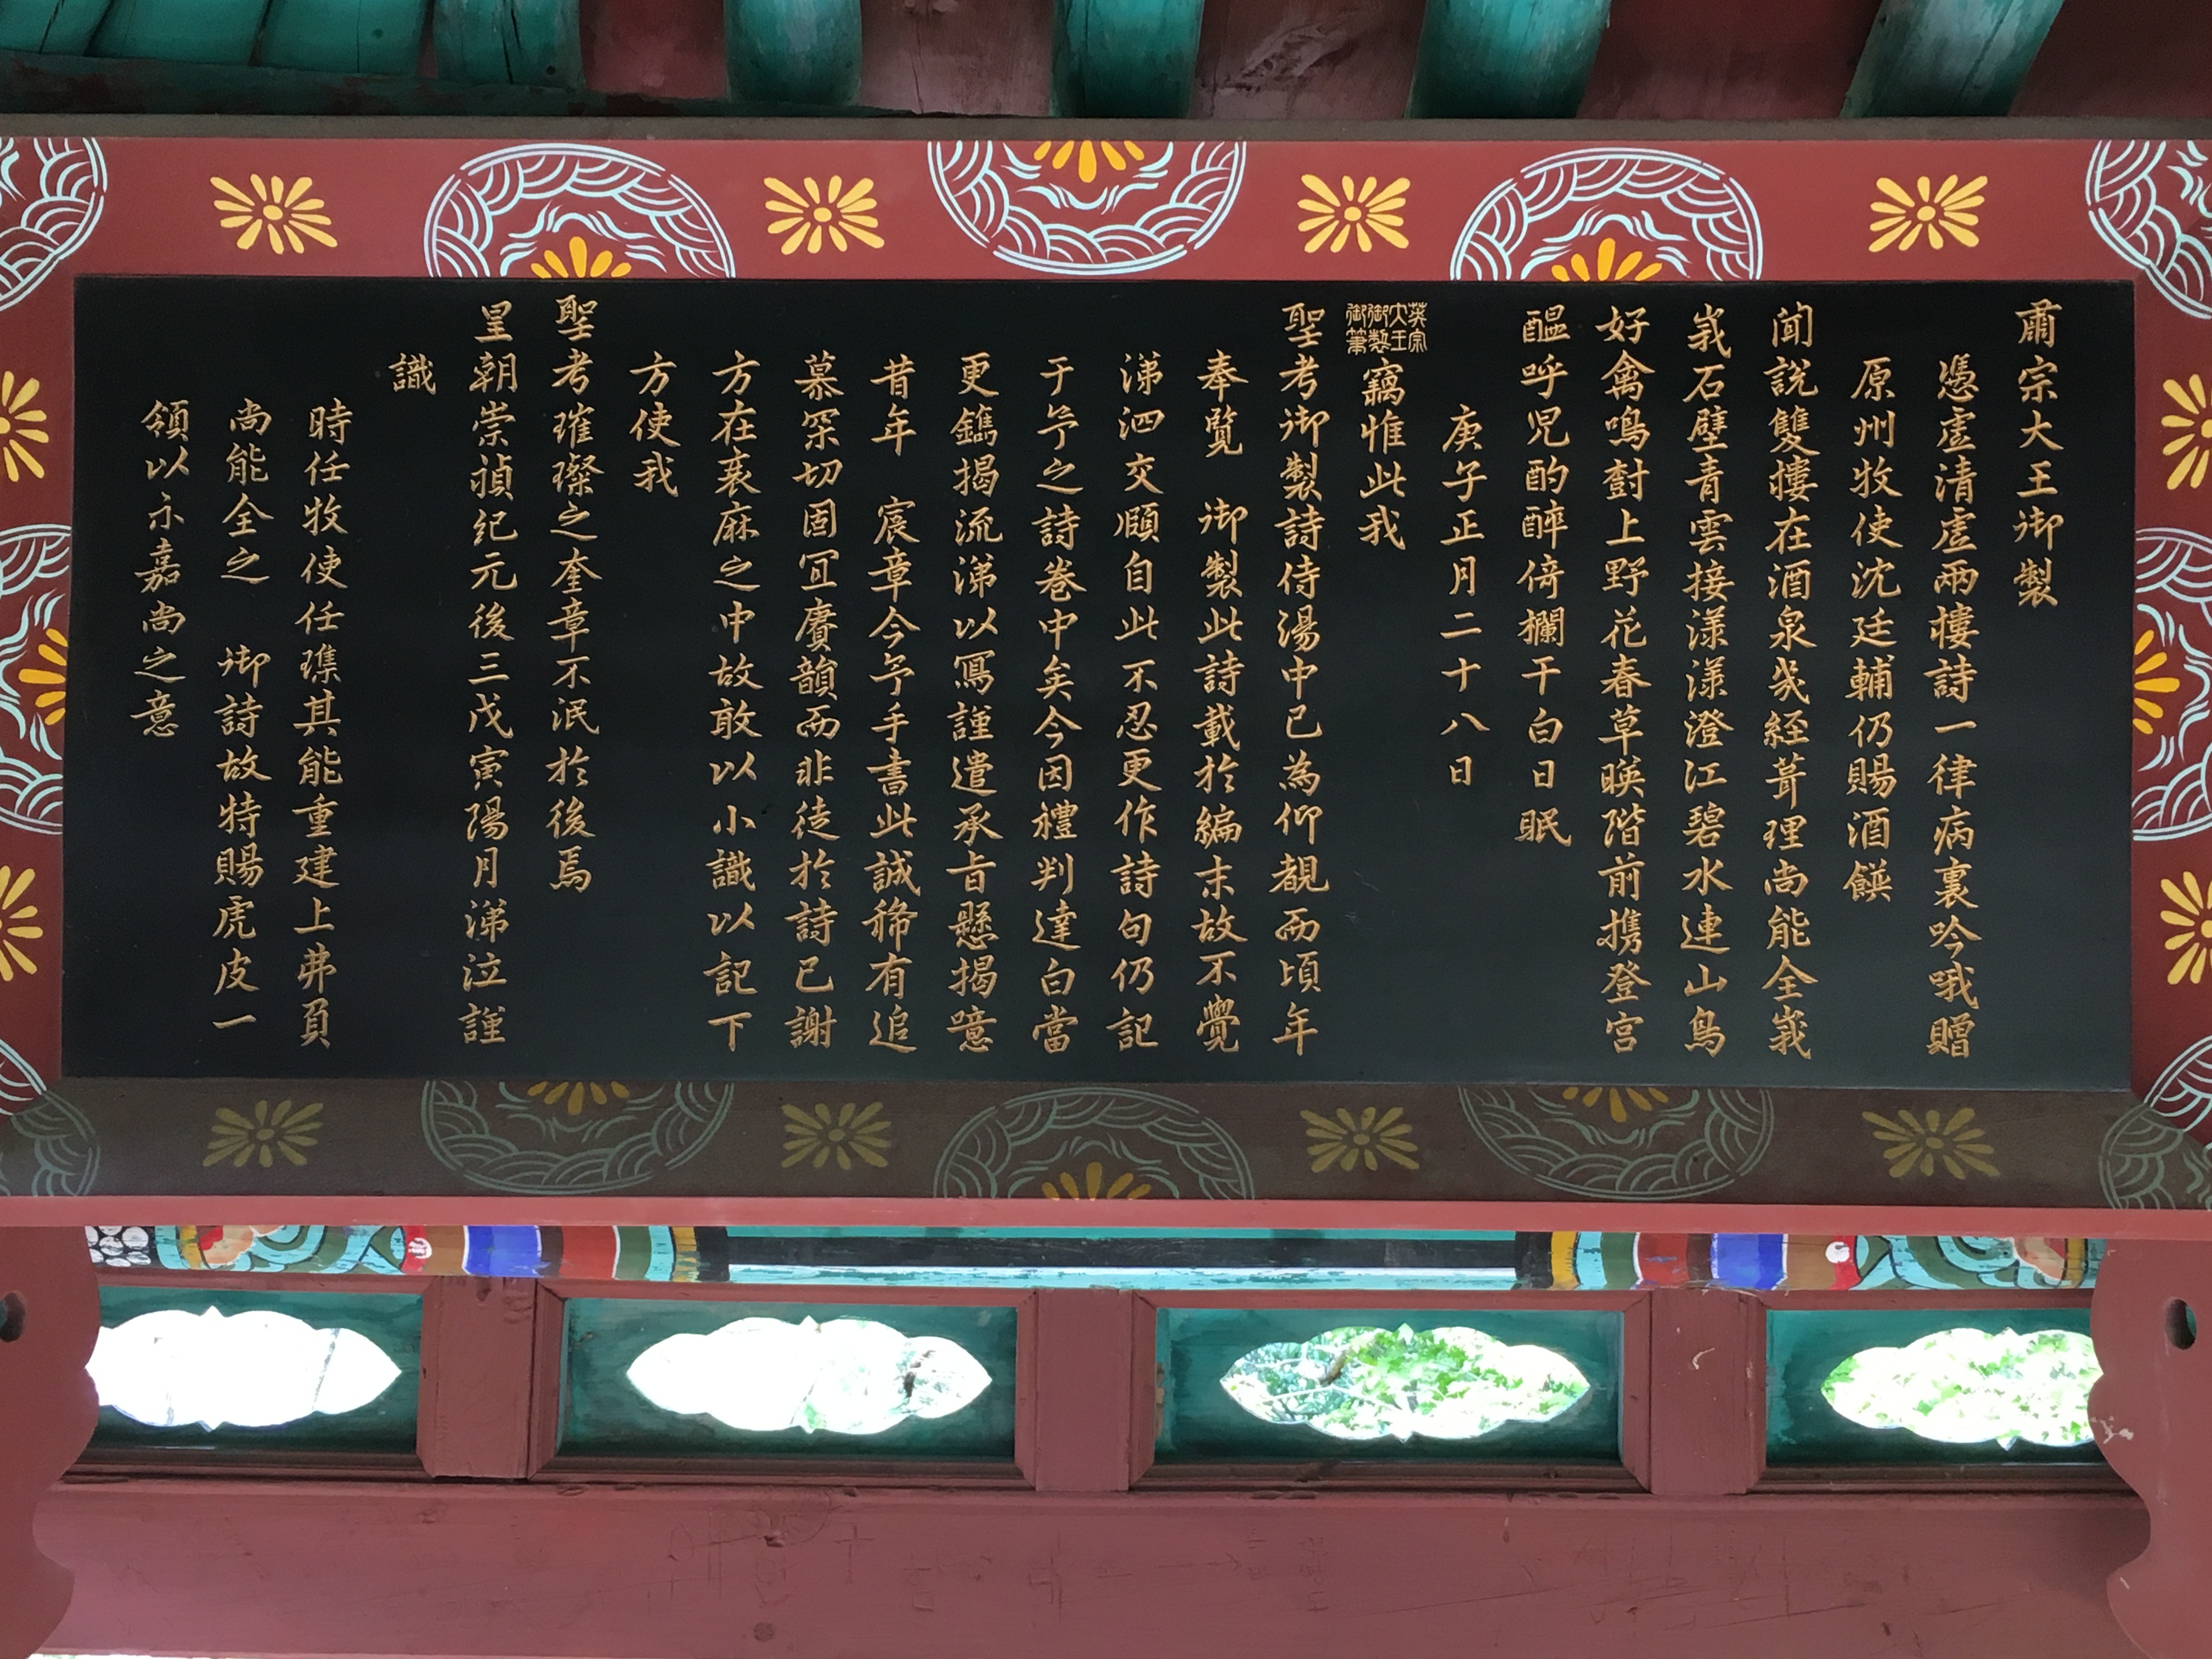 肅宗大王御製
憑虛清虛兩樓詩一律病裏吟哦贈
原州牧使沈廷輔仍賜酒饌
聞說雙樓在酒泉幾經葺理尚能全峩
峩石壁青雲接漾漾澄江碧水連山鳥
好禽鳴樹上野花春草暎階前携登官
醞呼児酌醉倚欄干白日眠
庚子正月二十八日
英宗大王御製御筆
竊惟此我
聖考御製詩侍湯中已為仰覩而頃年
奉覽 御製此詩載於編末故不覺
涕泗交頤自此不忍更作詩句仍記
于予之詩卷中矣今因禮判達白當
更鐫揭流涕以寫謹遣承旨懸揭噫
昔年 宸章今予手書此誠稀有追
慕深切固宜賡韻而非徒於詩已謝
方在衰麻之中故敢以小識以記下
方使我
聖考璀璨之奎章不泯於後焉
皇朝崇禎紀元後三戊寅陽月涕泣謹
識
時任牧使任㻐其能重建上弗負
尚能全之 御詩故特賜虎皮一
領以示嘉尚之意